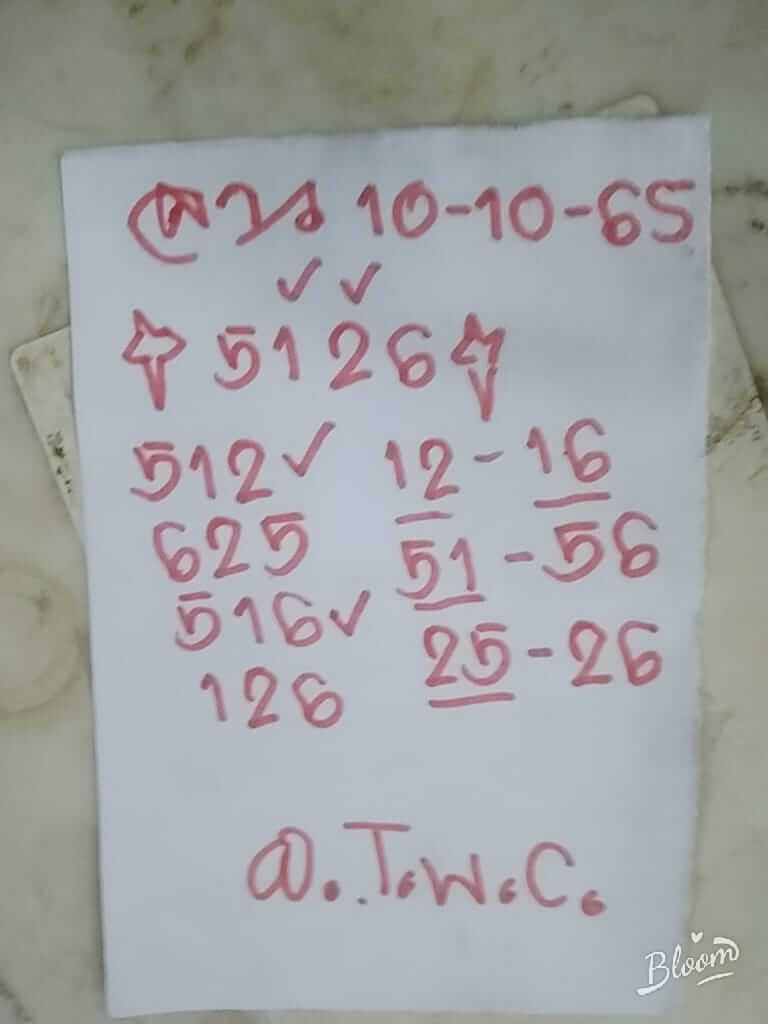 10-10-65
✓ ✓
5126
512✓ 12-16
625 51-56
516✓ 25-26
126
T.W.C.
Bloom